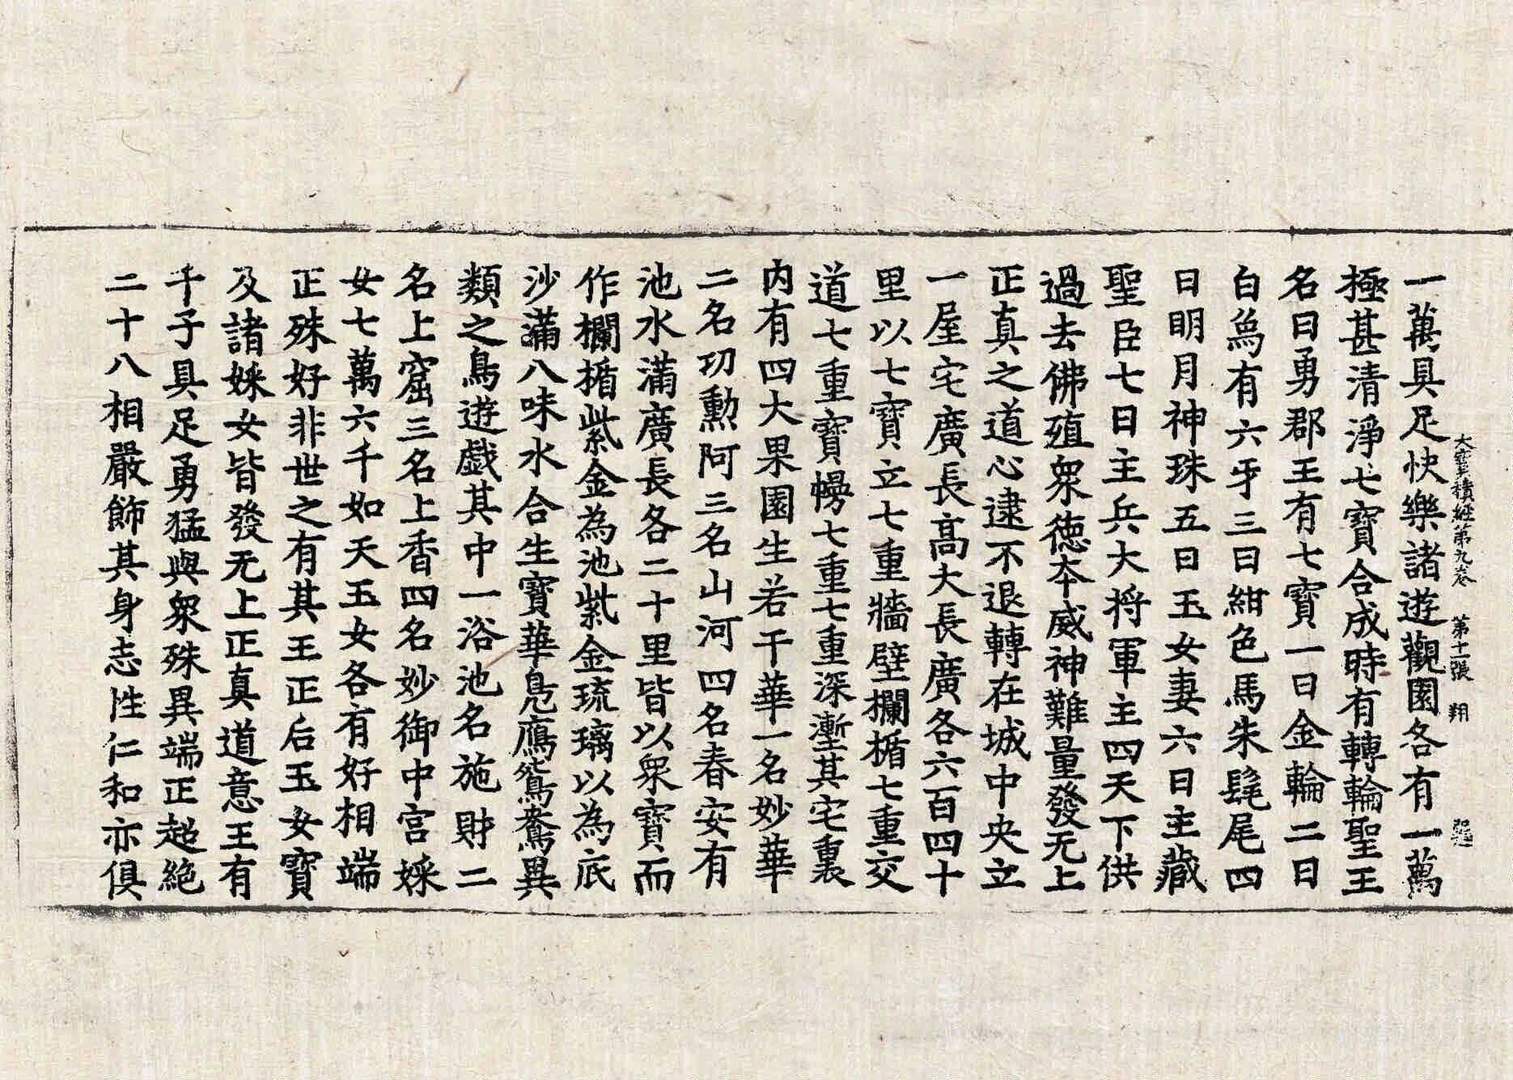 大寶積經第九卷 第十張 翔
一萬具足快樂諸遊觀園各有一萬
極甚清淨七寶合成時有轉輪聖王
名曰勇郡王有七寶一曰金輪二曰
白爲有六牙三曰紺色馬朱髦尾四
曰明月神珠五曰玉女妻六曰主藏
聖臣七曰主兵大将軍主四天下供
過去佛殖衆德夲威神難量發无上
正真之道心逮不退轉在城中央立
一屋宅廣長高大長廣各六百四十
里以七寶立七重牆壁欄楯七重交
道七重寶幔七重七重深壍其宅裏
内有四大果園生若干華一名妙華
二名功勳阿三名山河四名春安有
池水滿廣長各二十里皆以衆寶而
作欄楯紫金為池紫金琉璃以為底
沙滿八味水合生寶華鳧鴈鴛鴦異
類之鳥遊戲其中一浴池名施財二
名上窟三名上香四名妙御中宮婇
女七萬六千如天玉女各有好相端
正殊好非世之有其王正后玉女寶
及諸婇女皆發无上正真道意王有
千子具足勇猛與衆殊異端正超絶
二十八相嚴飾其身志性仁和亦俱